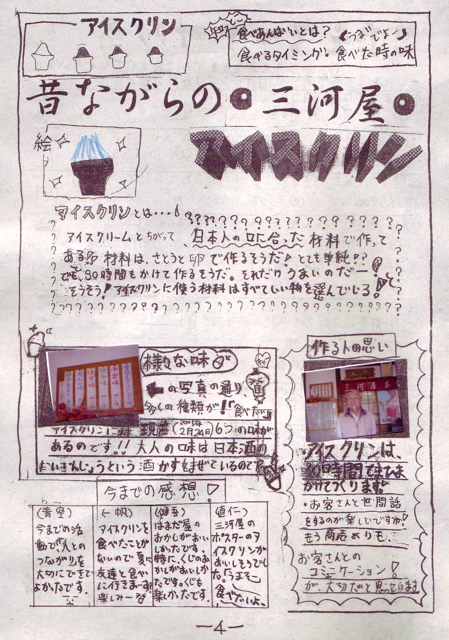 アイスクリン
食べあんばいとは?
食べるタイミング。食べた時の味
昔ながらの・三河屋・
アイスクリン
絵
アイスクリンとは…!
アイスクリームとちがって、日本人の口に合った材料で作って
ある。材料は、さとうと卵で作るそうだ! とても単純!?
でも、30時間もかけて作るそうだ。それだけうまいのだー!
そうそう!アイスクリンに使う材料はすべていい物を選んでいる!
様々な味
の写真の通り、
種類が!
アイスクリンには 現在 6つの味が
あるのです!! 大人の味は日本酒の
だいぎんじょうという酒かすをまぜているのです
作る人の思い
三河屋
アイスクリンは、
30時間
かけてつくります。
・お客さんと世間話
をするのが楽しいですね!
もう商店よりも、
お客さんとの
コミニケーション!
が、大切だと思っています
今までの感想!
今までの活
動で「人との
つながり」を
大切にできて
よかったです。
(一帆)
アイスクリンを
食べたことが
ないので夏に
友達と食べ
に行きまーす!
楽しみ〜
(健吾)
はまだ屋の
おかしがおいし
かったです。
特に、くじのお
かしがおいしか
ったです。くじも
楽しかったです。
(直仁)
三河屋の
ポスターのア
イスクリンが
おいしそうでし
た。
食べたいよ。
－4－